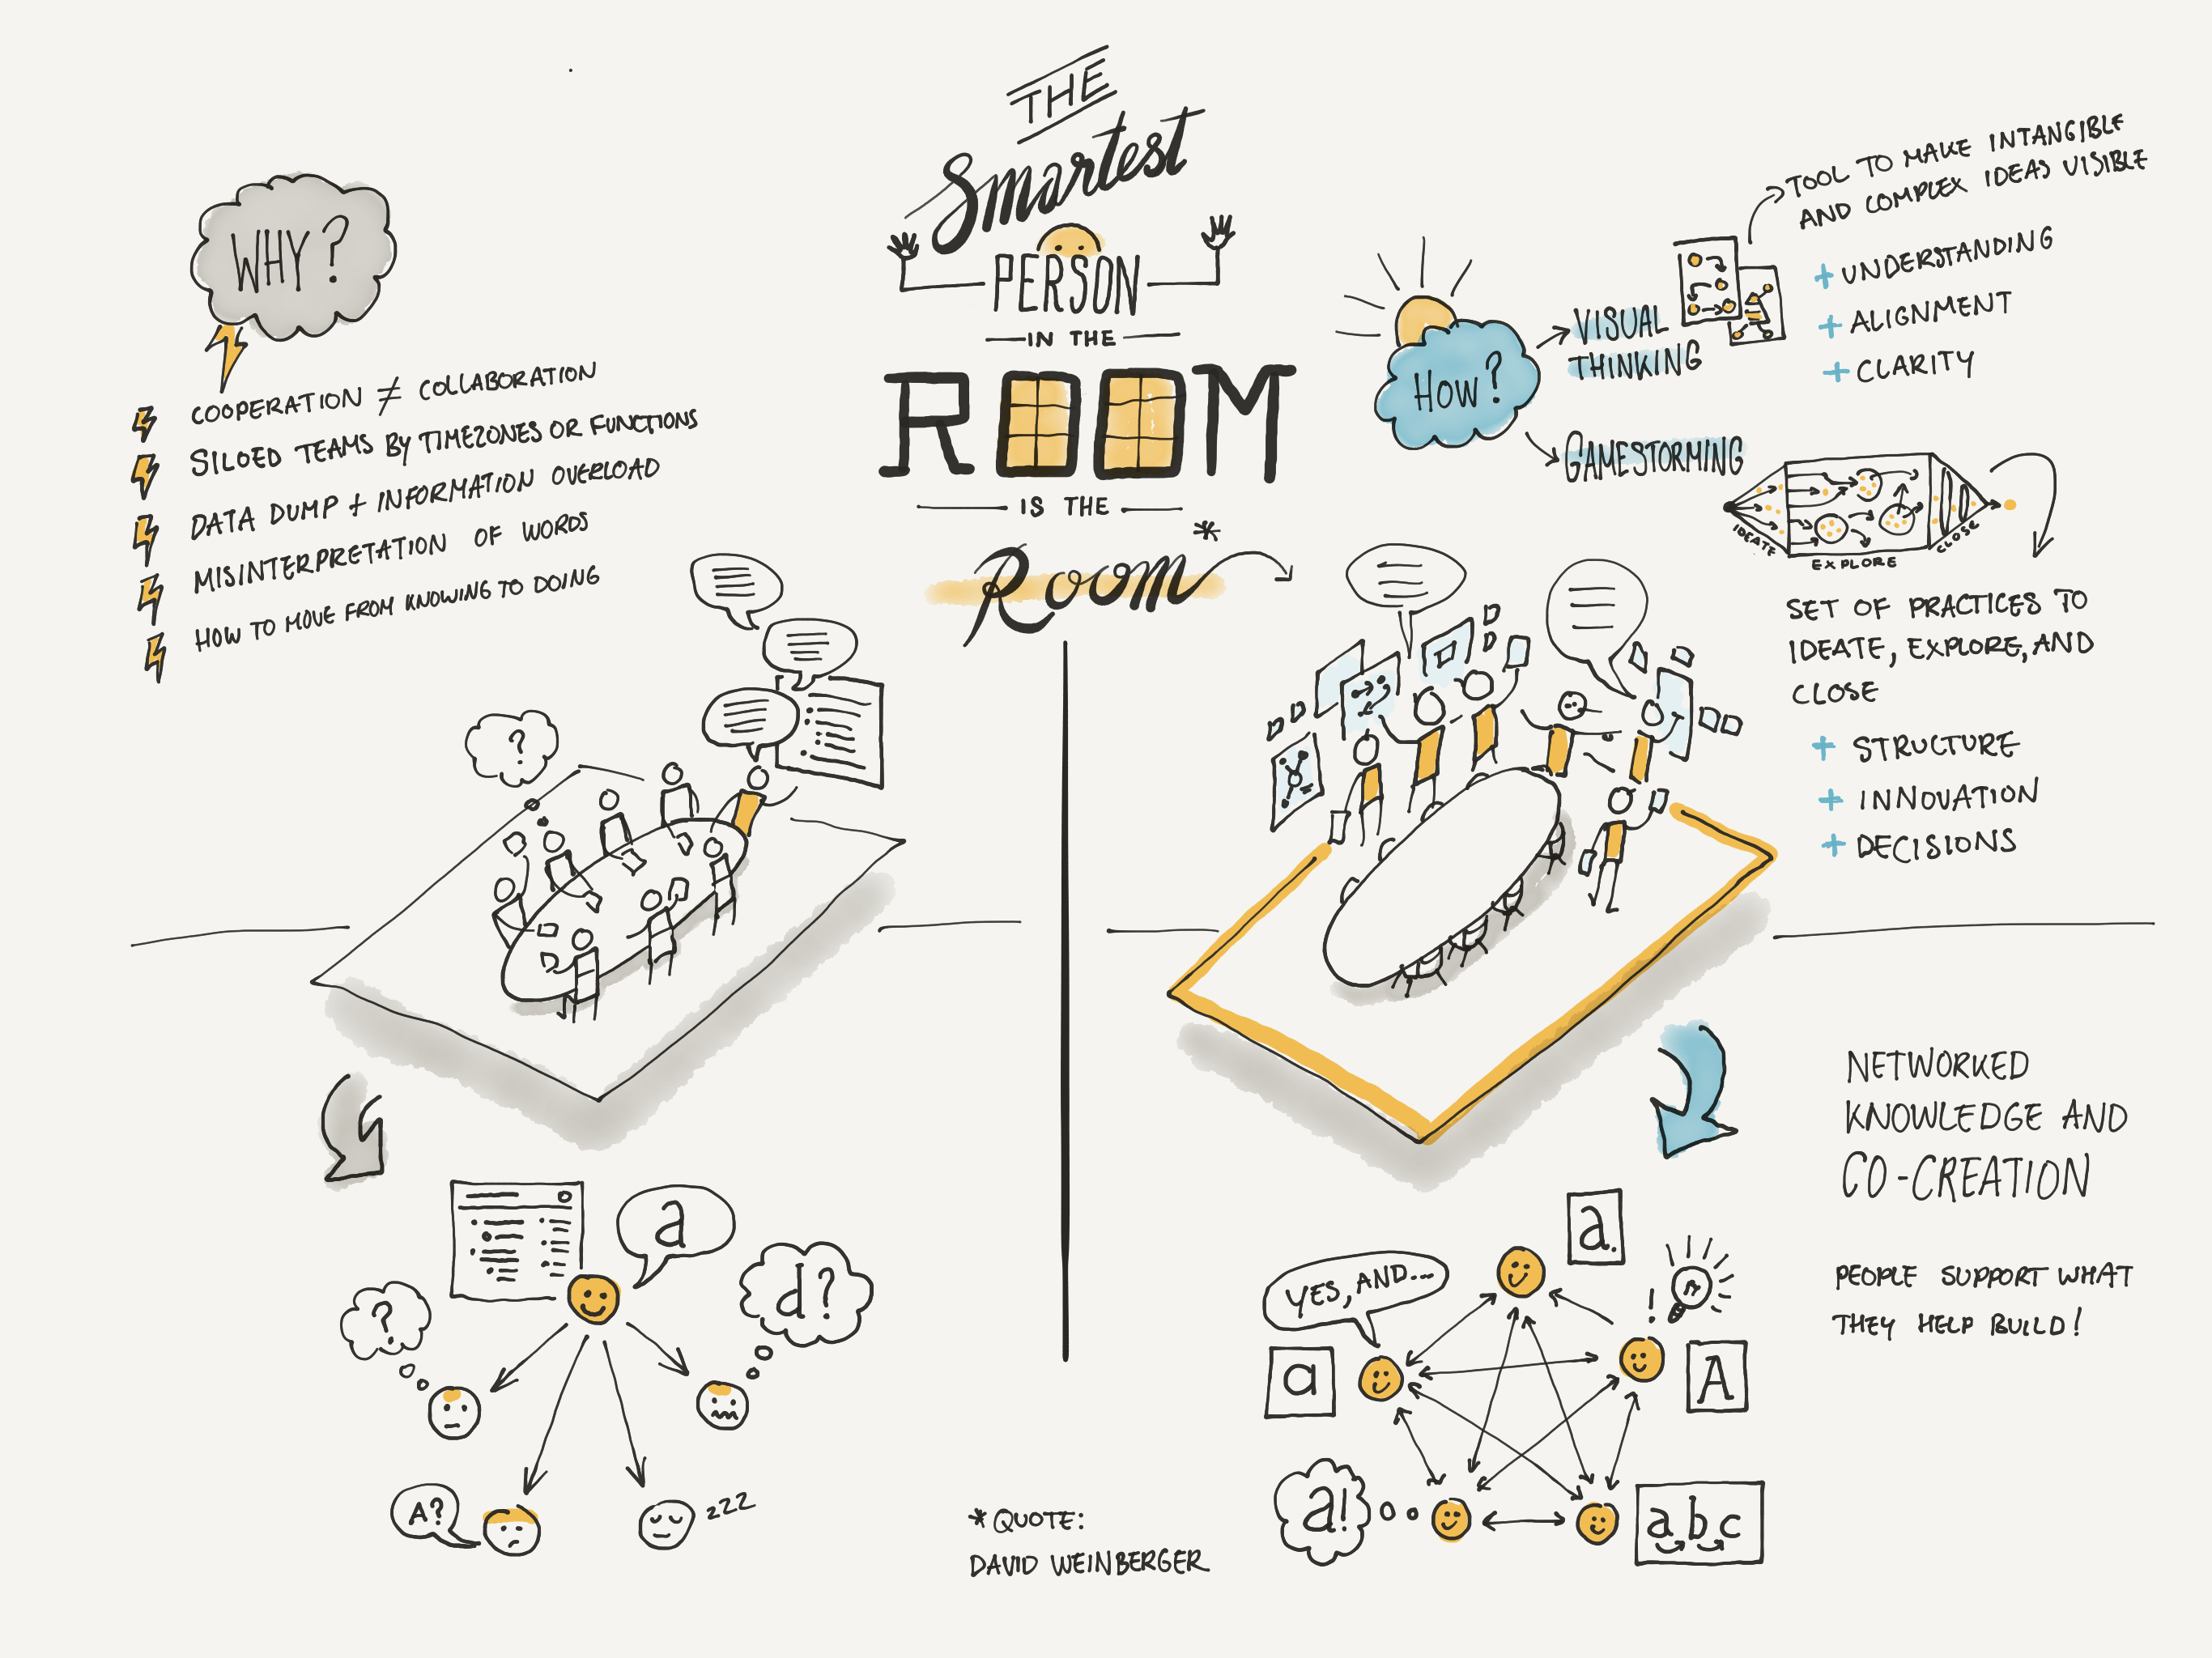 THE
Smartest
PERSON
IN THE
ROOM
IS THE
Room*
WHY?
COOPERATION ≠ COLLABORATION
SILOED TEAMS BY TIMEZONES OR FUNCTIONS
DATA DUMP + INFORMATION OVERLOAD
MISINTERPRETATION OF WORDS
HOW TO MOVE FROM KNOWING TO DOING
?
HOW?
VISUAL
THINKING
TOOL TO MAKE INTANGIBLE
AND COMPLEX IDEAS VISIBLE
+ UNDERSTANDING
+ ALIGNMENT
+ CLARITY
GAMESTORMING
IDEATE
EXPLORE
CLOSE
SET OF PRACTICES TO
IDEATE, EXPLORE, AND
CLOSE
+ STRUCTURE
+ INNOVATION
+ DECISIONS
a
?
d?
A?
zzz
NETWORKED
KNOWLEDGE AND
CO-CREATION
PEOPLE SUPPORT WHAT
THEY HELP BUILD!
a.
YES, AND...
!
a
A
a!
abc
* QUOTE:
DAVID WEINBERGER